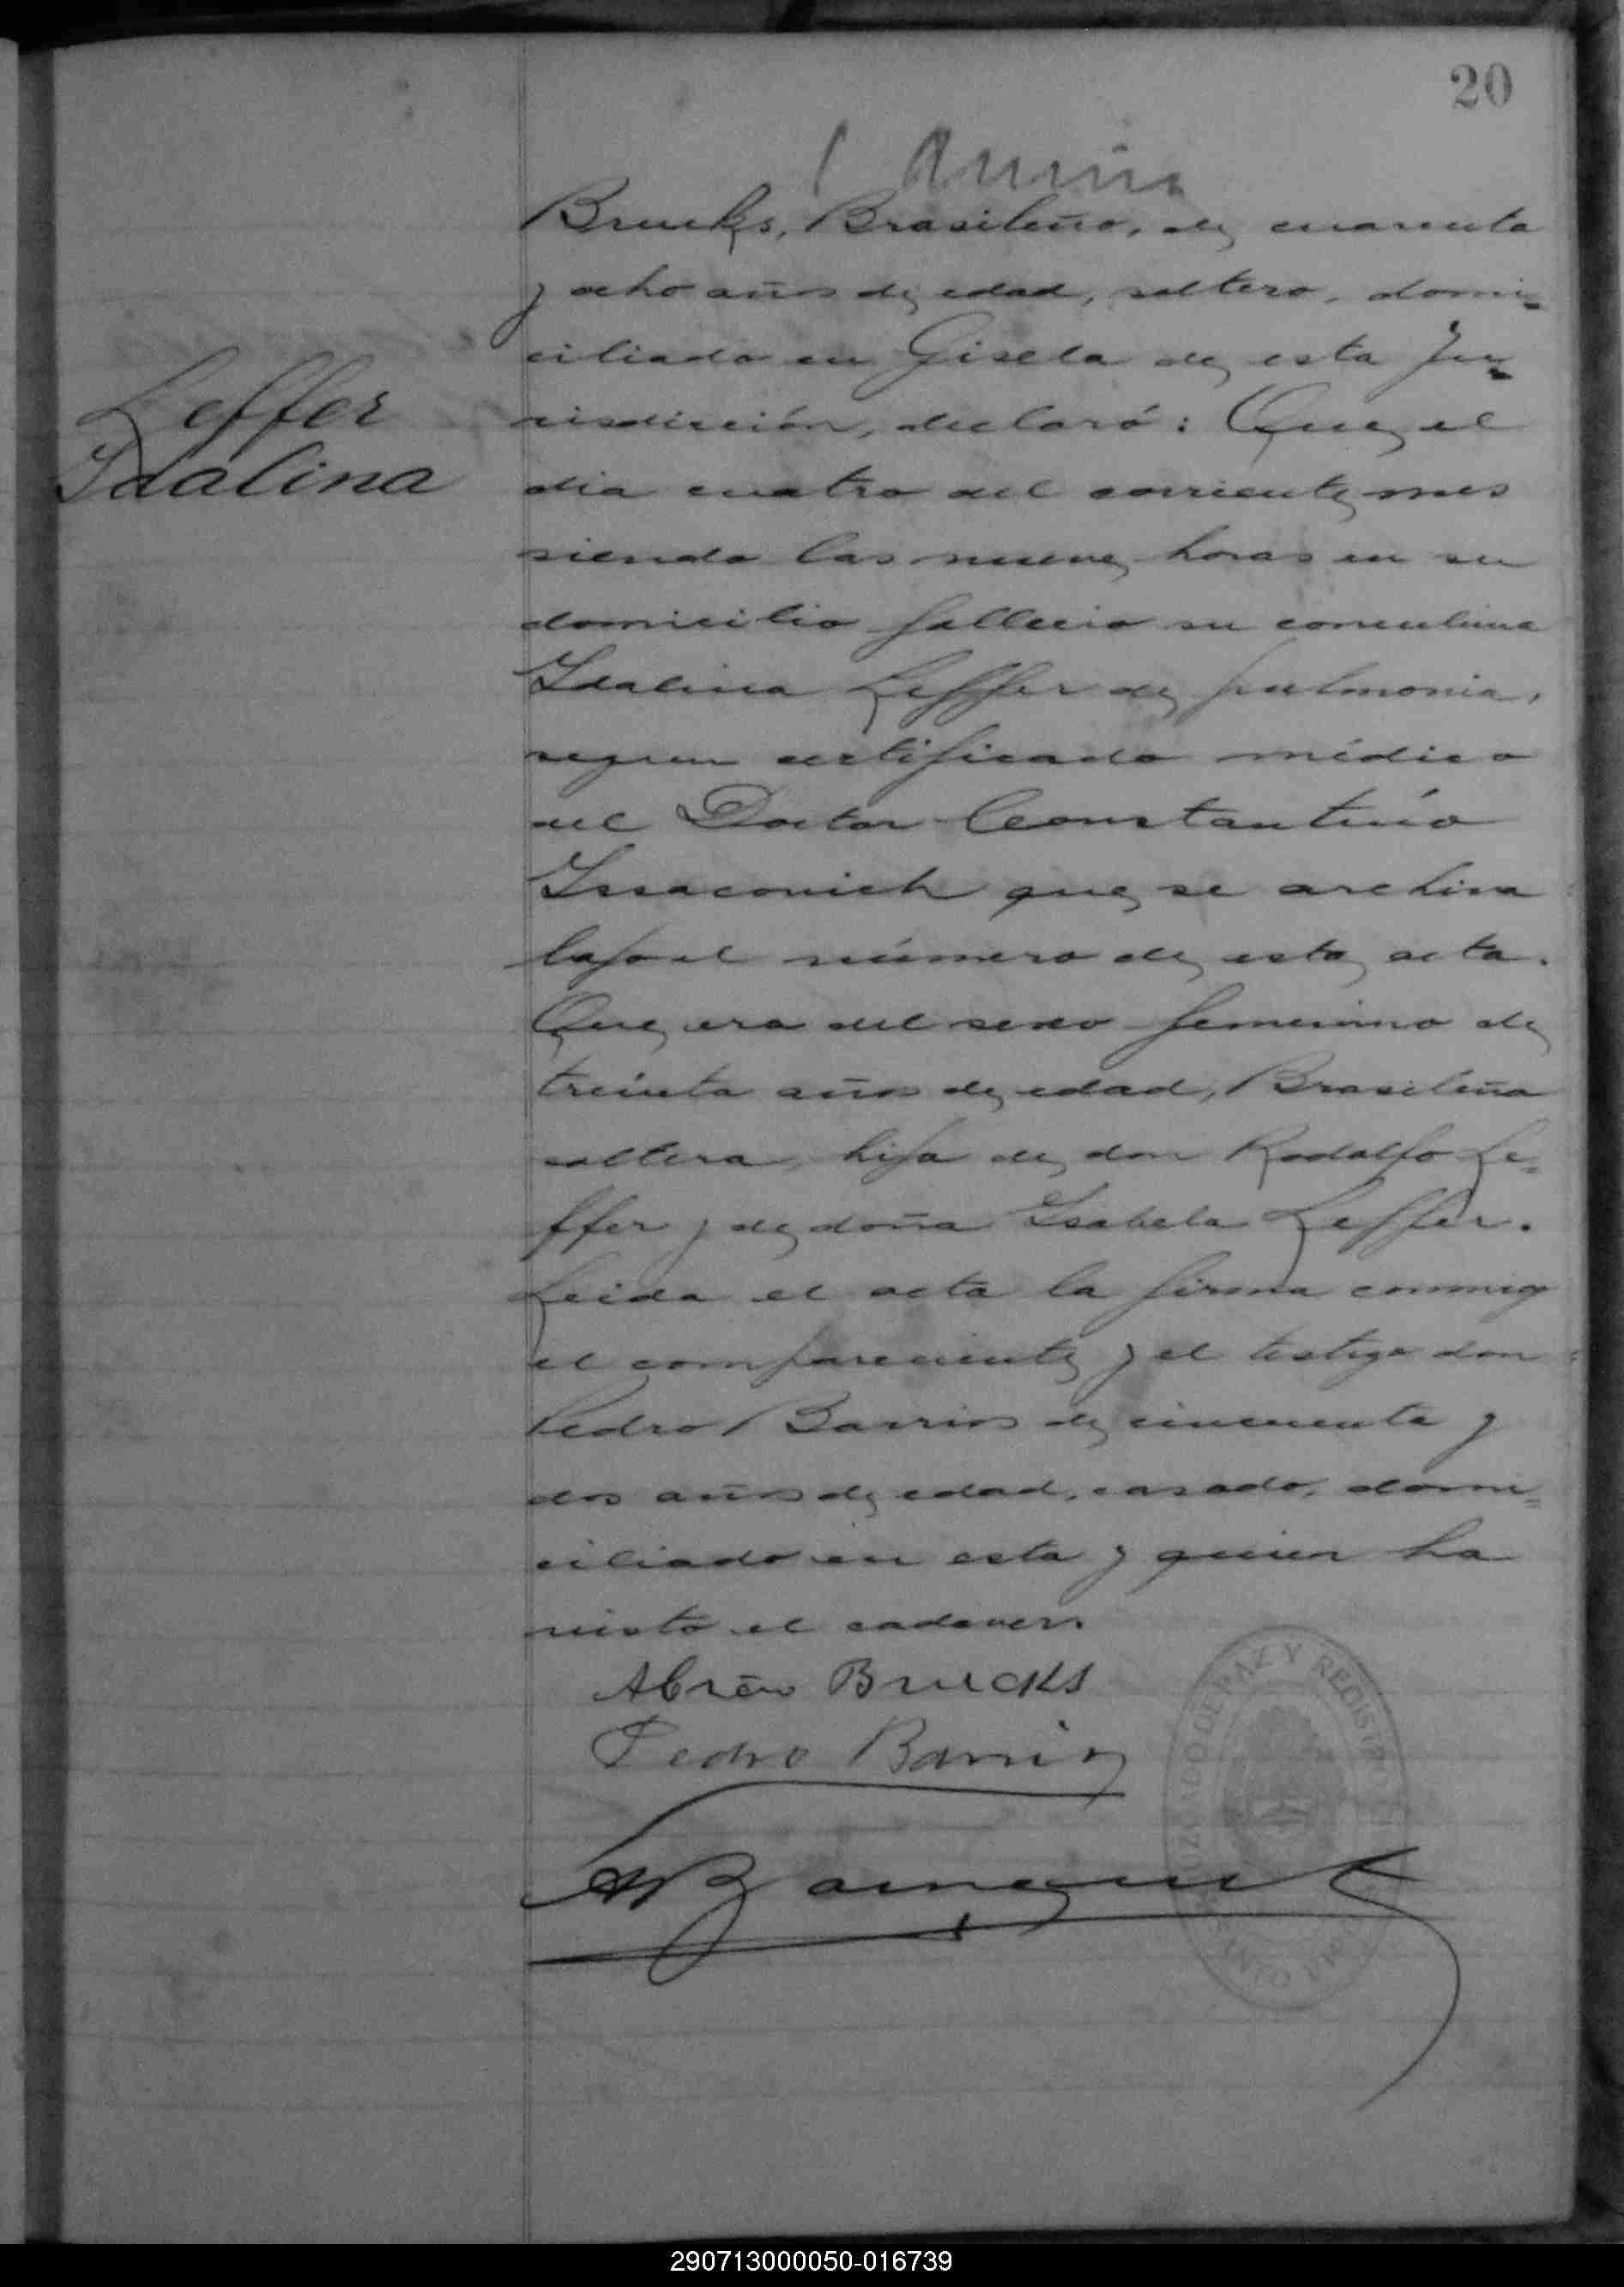 20
Brucks, Brasileño, de cuarenta
y ocho años de edad, soltero, domi-
ciliado en Gisela de esta Ju-
risdicción, declaró: Que el
Leffer
Idalina
dia cuatro del corriente mes
siendo las nueve horas en su
domicilio fallecio su concubina
Idalina Leffer de pulmonia,
segun certificado médico
del Doctor Constantino
Issaconich que se archiva
bajo el número de esta acta.
Que era del sexo femenino de
treinta años de edad, Brasileña
soltera, hija de don Rodolfo Le-
ffer y de doña Isabela Leffer.
Leida el acta la firma conmigo
el compareciente y el testigo don
Pedro Barrios de cincuenta y
dos años de edad, casado, domi-
ciliado en esta y quien ha
visto el cadaver.
Abreu Brucks
Pedro Barrios
JUZGADO DE PAZ Y REGISTRO
290713000050-016739